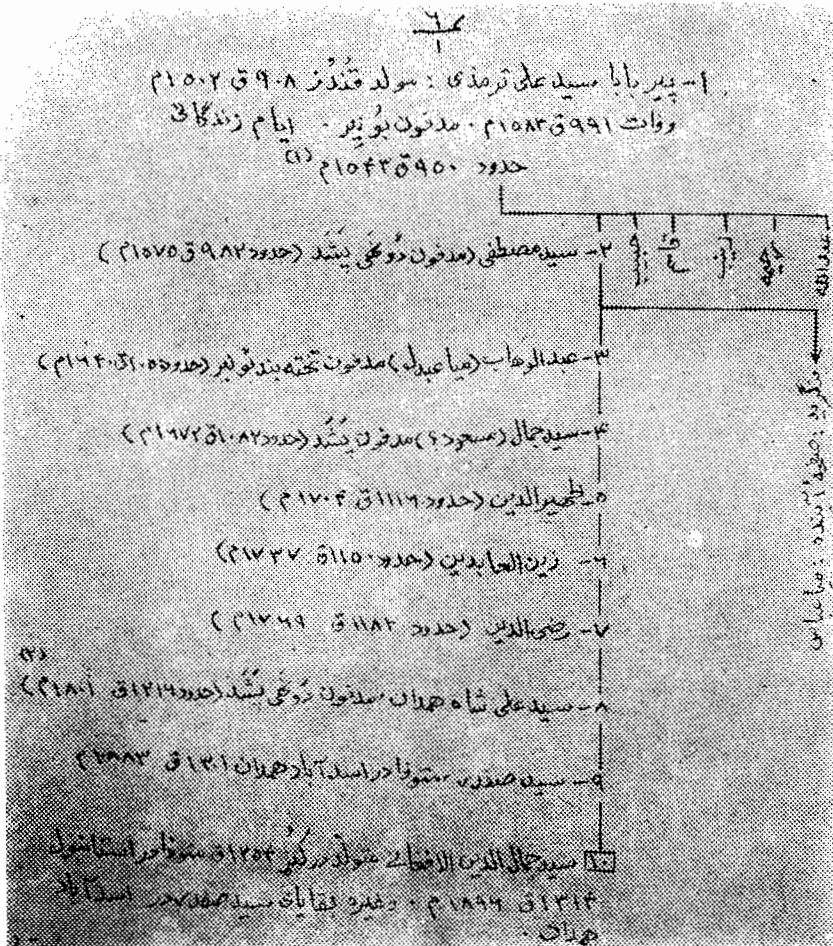 ۱- پیر بابا سید علی ترمذی : مولد قُندُز ۹۰۸ ق ۱۵۰۲م
وفات ۹۹۱ق ۱۵۸۳م . مدفون بُونیر . ایام زندگانی
حدود ۹۵۰ق ۱۵۴۳م (۱)
عبدالله
۲- سید مصطفی (مدفون دُوغَی پَشَد (حدود ۹۸۲ق ۱۵۷۵م)
۳- عبدالوهاب (میا عبدل) مدفون تخته بند بونیر (حدود ق ۱۶۴۰م)
۴- سید جمال (مسعود؟) مدفون پَشَد (حدود ۱۰۸۲ق ۱۶۷۲م)
۵- ظهیرالدین (حدود ۱۱۱۶ق ۱۷۰۴م)
۶- زین العابدین (حدود ۱۱۵۰ق ۱۷۳۷م)
۷- رضی الدین (حدود ۱۱۸۲ق ۱۷۶۹م)
۸- سید علی شاه همدان، مدفون دُوغَی پَشَد (حدود ۱۲۱۶ق ۱۸۰۱م) (۲)
۹- سید صفدر، متوفا در اسدآباد همدان ۱۳۰۱ق ۱۸۸۳م
۱۰ سید جمال الدین الافغانی متولد در کُنَر ۱۲۵۴ق متوفا در استانبول
۱۳۱۴ق ۱۸۹۶م . وغیره بقایای سید صفدر در اسدآباد
همدان .
برگردید : صفحهٔ آینده : میا عباس